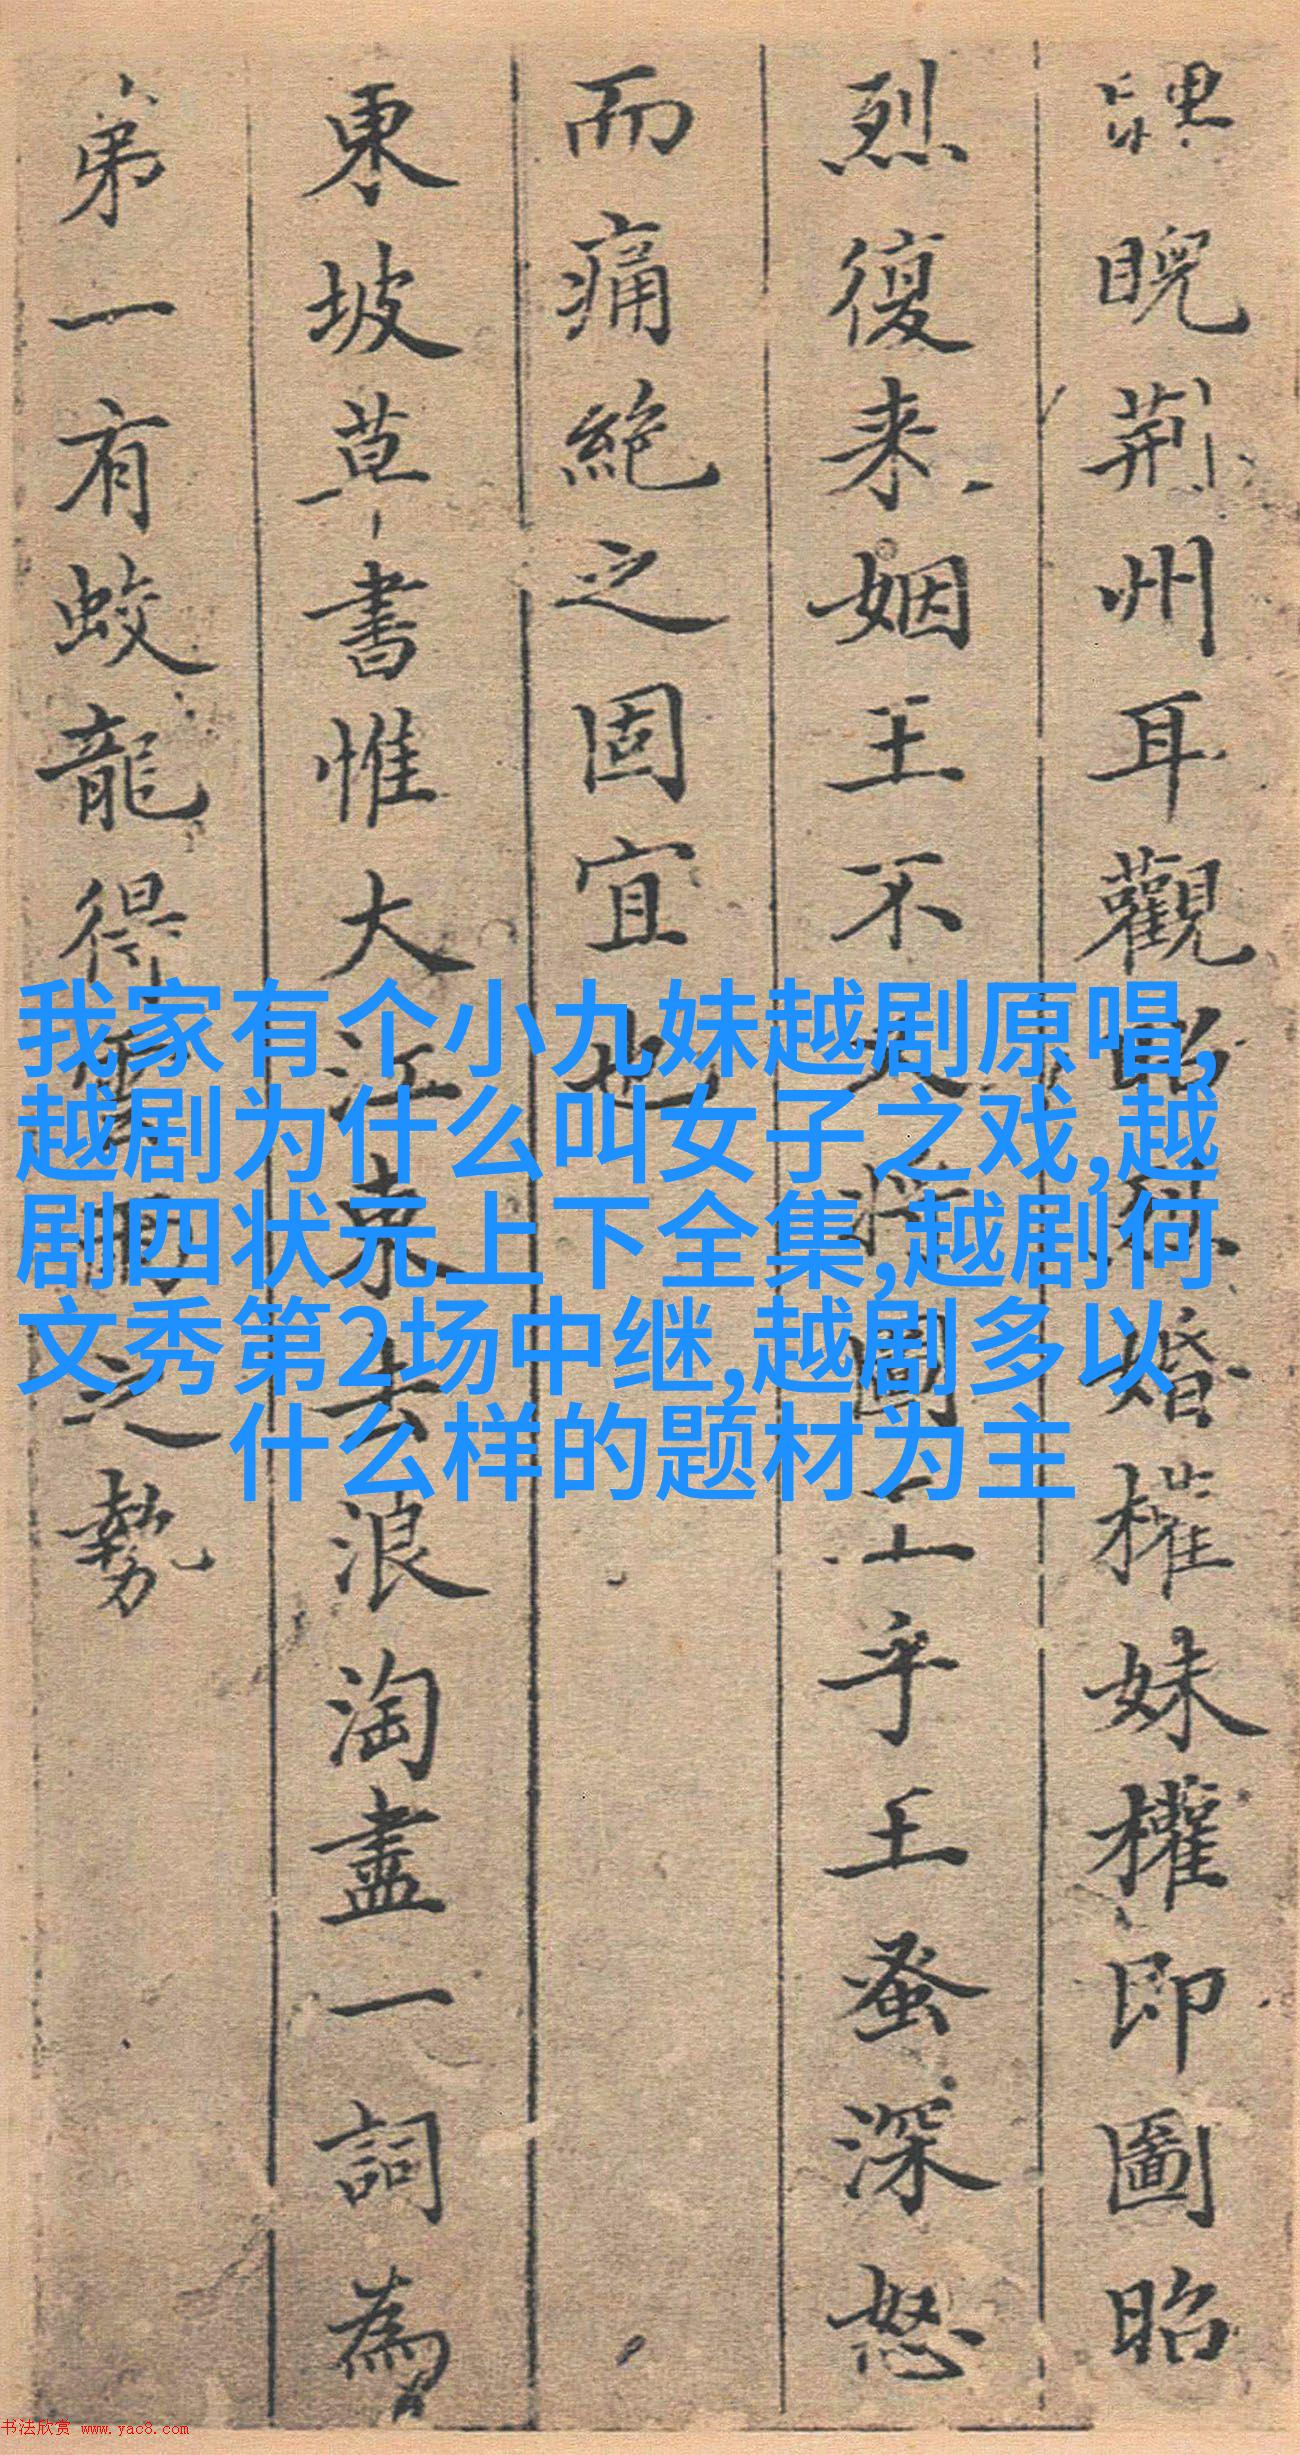 睨荆州耳觀昭烈婚權妹權即圖昭
烈復来姻王不將圖王乎王蚤深怒
而痛絶之固宜也
東坡草書惟大江東去浪淘盡一詞為
弟一有蛟龍得雲雨之勢
我家有个小九妹越剧原唱,
越剧为什么叫女子之戏,越
剧四状元上下全集,越剧何
文秀第2场中继,越剧多以
什么样的题材为主
书法欣赏 www.yac8.com